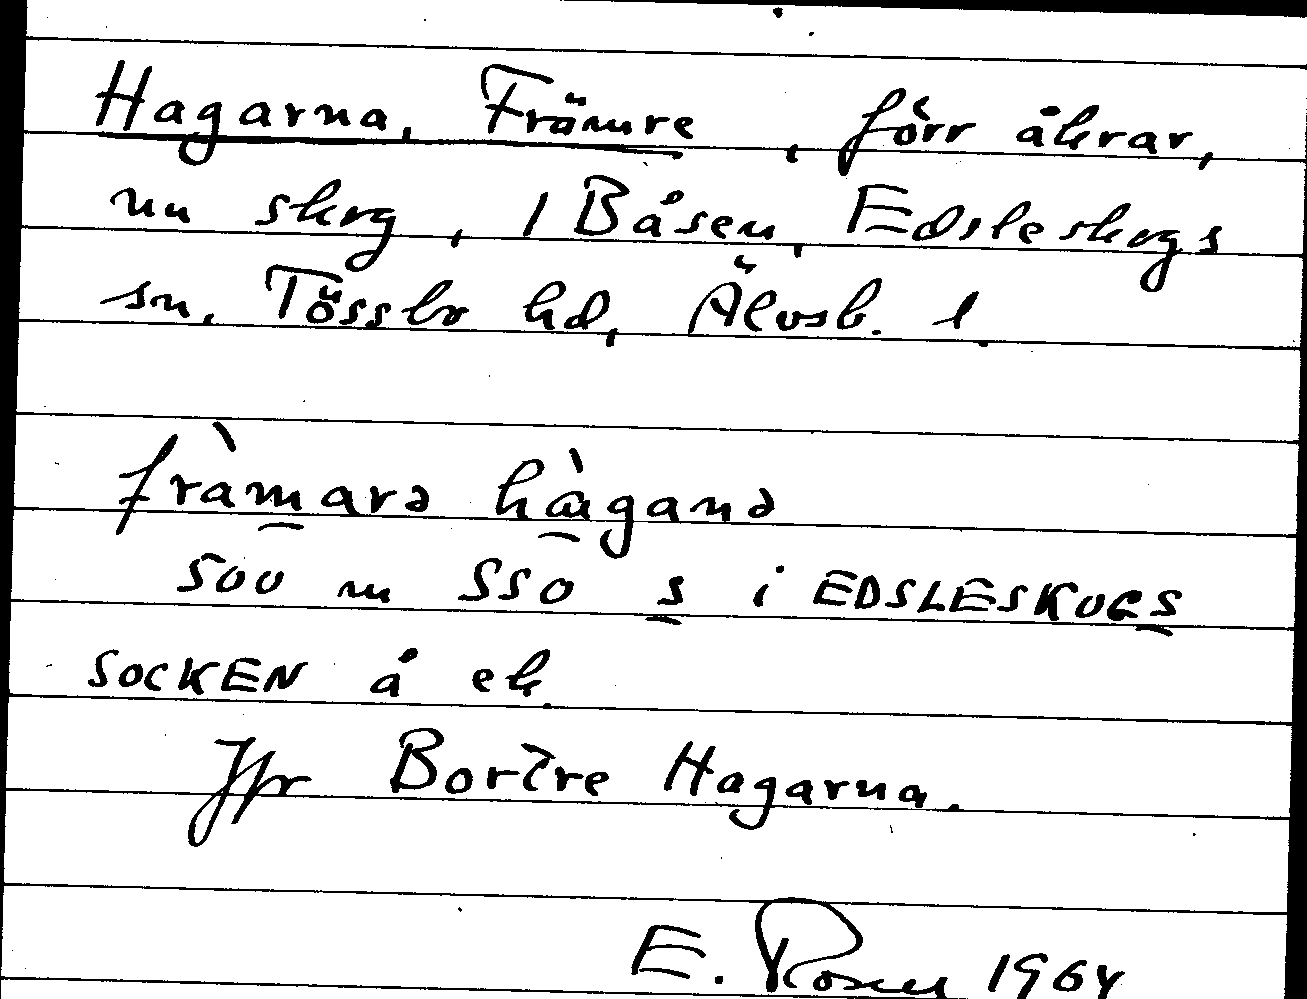 Hagarna, Främre, förr åkrar,
nu skog, 1 Båsen, Edsleskogs
sn, Tössbo hd, Älvsb. l.
fràmarə hàganə
500 m SSO s i EDSLESKOGS
SOCKEN å ek.
Jfr Bortre Hagarna.
E. Rosen 1964